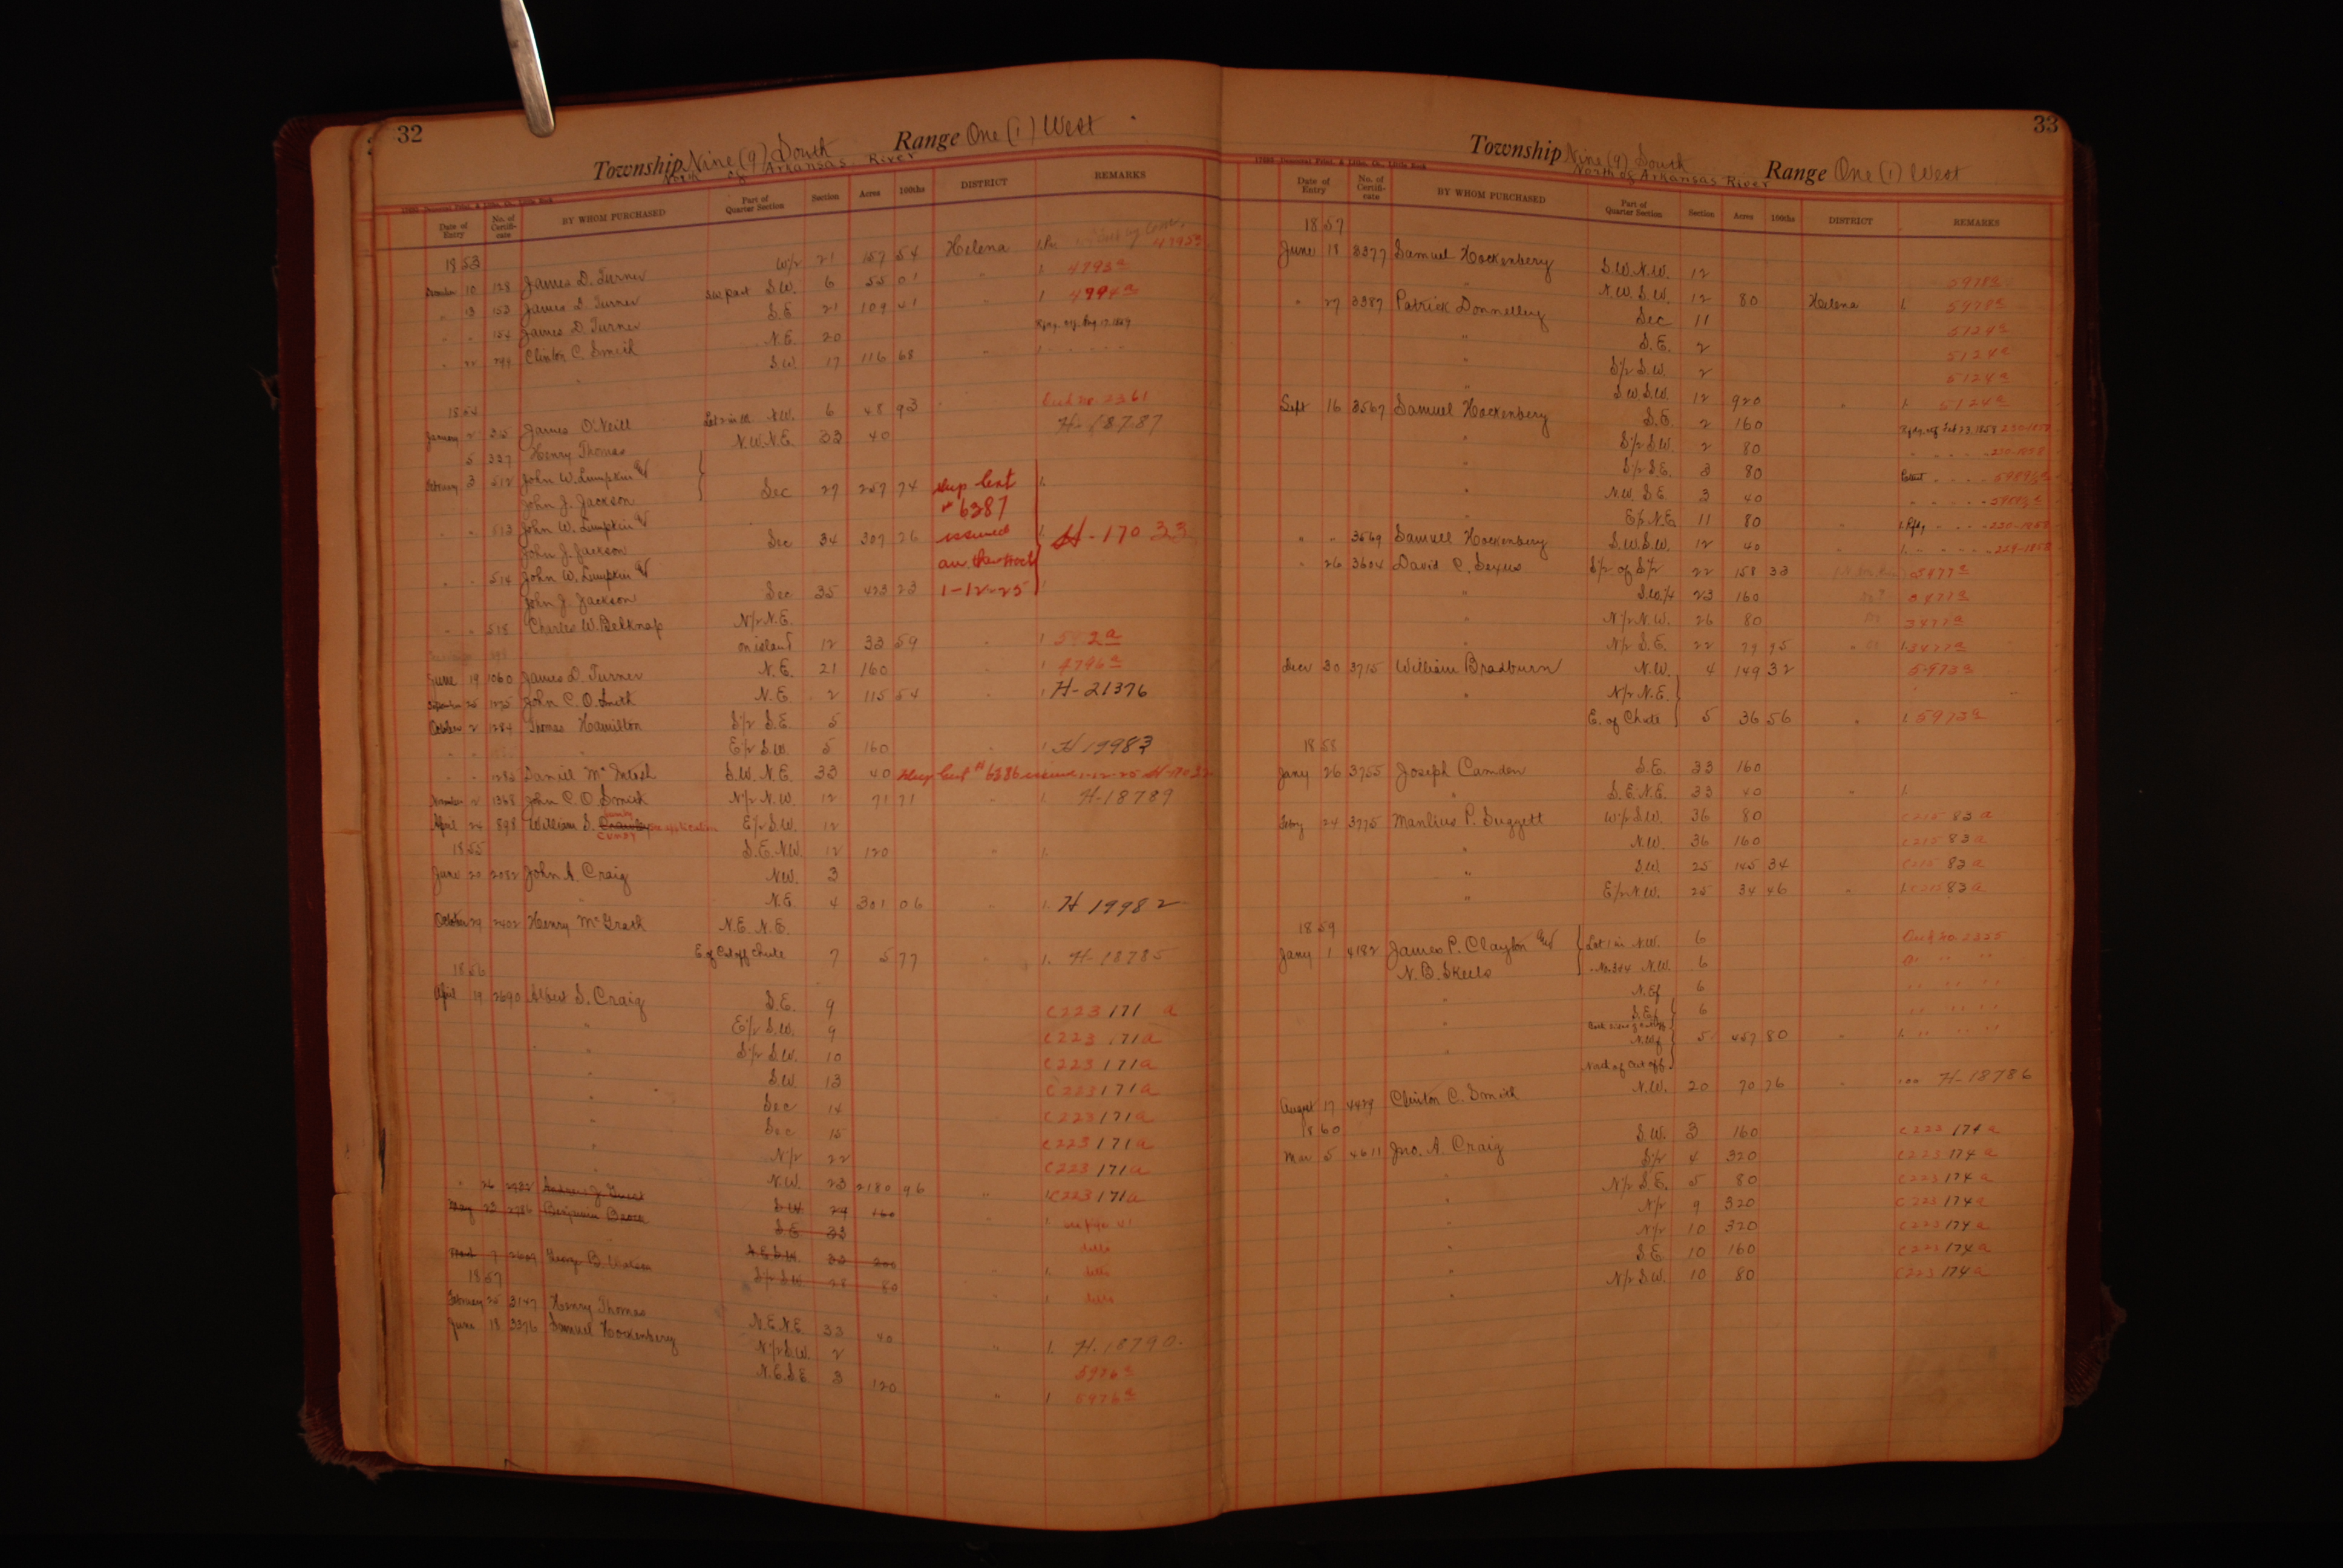 32
Township Nine (9) South Range One (1) West
North of Arkansas River
Date of Entry No. of Certificate BY WHOM PURCHASED Part of Quarter Section Section Acres 100ths DISTRICT REMARKS
1853
December 10 128 James D. Turner W/2 21 157 54 Helena 1.
" 13 153 James D. Turner SW part S.W. 6 55 01 " 1. 4793a
" " 154 James D. Turner S.E. 21 109 41 " 1 4994a
" 22 Clinton C. Smith N.E. 20
" S.W. 17 116 68 " 1.
1854
January 2 James O'Neill N.W. 6 48 93 2361
5 327 Henry Thomas N.W.N.E. 33 40 H-18787
February 3 512 John W. Lumpkin &
John J. Jackson Sec 27 257 74 Dup Cert 1.
# 6387
" " 513 John W. Lumpkin & issued
John J. Jackson Sec 34 307 26 1. H-17033
" " 514 John W. Lumpkin &
John J. Jackson Sec 35 423 23 1-12-25 1.
" " 518 Charles W. Belknap N/2 N.E.
on island 12 33 59 " 1.
June 19 1060 James D. Turner N.E. 21 160 " 1 4796a
September 25 1275 John C. O. Smith N.E. 2 115 54 " 1 H-21376
October 2 1284 Thomas Hamilton S/2 S.E. 5
" " " E/2 S.W. 5 160 " 1. H 19983
" " 1285 Daniel McIntosh S.W. N.E. 33 40 Dup Cert # 6386 issued 1-12-25
November 2 1368 John C. O. Smith N/2 N.W. 12 71 71 " 1. H-18789
April 24 898 William S. Cundy see application E/2 S.W. 12
1855 S.E. N.W. 12 120 " 1.
June 20 2082 John A. Craig N.W. 3
" N.E. 4 301 06 " 1. H 19982
October 29 2402 Henry McGrath N.E. N.E.
E. of Cut off Chute 7 5 77 " 1. H-18785
1856
April 19 2690 Albert S. Craig S.E. 9 C223 171 a
" E/2 S.W. 9 C223 171a
" S/2 S.W. 10 C223 171a
" S.W. 13 C223 171a
" Sec 14 C223 171a
" Sec 15 C223 171a
" N/2 22 C223 171a
" N.W. 23 2180 96 " 1. C223 171a
" 26 S.W. 27 160 "
May 23 2786 Benjamin S.E. 33
33 200 " 1.
7 George B. Watson S/2 S.W. 28 80 " 1.
1857
February 25 3147 Henry Thomas N.E. N.E. 33 40 " 1. H-18790.
June 18 3376 Samuel Hockenbery N/2 S.W. 2 5976a
N.E. S.E. 3 120 " 1 5976a
33
Township Nine (9) South Range One (1) West
North of Arkansas River
Date of Entry No. of Certificate BY WHOM PURCHASED Part of Quarter Section Section Acres 100ths DISTRICT REMARKS
1857
June 18 3377 Samuel Hockenbery S.W. N.W. 12 5978a
" N.W. S.W. 12 80 Helena 1. 5978a
" 27 3387 Patrick Donnelley Sec 11 5124a
" S.E. 2 5124a
" S/2 S.W. 2 5124a
" S.W. S.W. 12 920 " 1. 5124a
Sept 16 3567 Samuel Hockenbery S.E. 2 160
" S/2 S.W. 2 80
" S/2 S.E. 3 80
" N.W. S.E. 3 40
" E/2 N.E. 11 80 "
" " 3569 Samuel Hockenbery S.W. S.W. 12 40 " 1.
" 26 3604 David C. S/2 of S/2 22 158 33 3477a
" S.W./4 23 160 3477a
" N/2 N.W. 26 80 3477a
" N/2 S.E. 22 79 95 " 1. 3477a
Decr 30 3715 William Bradburn N.W. 4 149 32 5973a
" N/2 N.E.
E. of Chute 5 36 56 " 1. 5973a
1858
Jany 26 3755 Joseph Camden S.E. 33 160
" S.E. N.E. 33 40 " 1.
Feby 24 3775 Manlius P. Suggett W/2 S.W. 36 80 C215 83 a
" N.W. 36 160 C215 83 a
" S.W. 25 145 34 C215 83 a
" E/2 N.W. 25 34 46 " 1. C215 83 a
1859
Jany 1 4182 James P. Clayton and Lot 1 in N.W. 6
N. B. Skeels N.W. 6
" N.Ef 6
" S.Ef 6
Both sides of Cut Off
N.Wf 5 457 80 " 1.
North of Cut off
August 17 4429 Clinton C. Smith N.W. 20 70 76 " H-18786
1860
Mar 5 4611 Jno. A. Craig S.W. 3 160 C223 174 a
" S/2 4 320 C223 174 a
" N/2 S.E. 5 80 C223 174 a
" N/2 9 320 C223 174 a
" N/2 10 320 C223 174 a
" S.E. 10 160 C223 174 a
" N/2 S.W. 10 80 C223 174 a